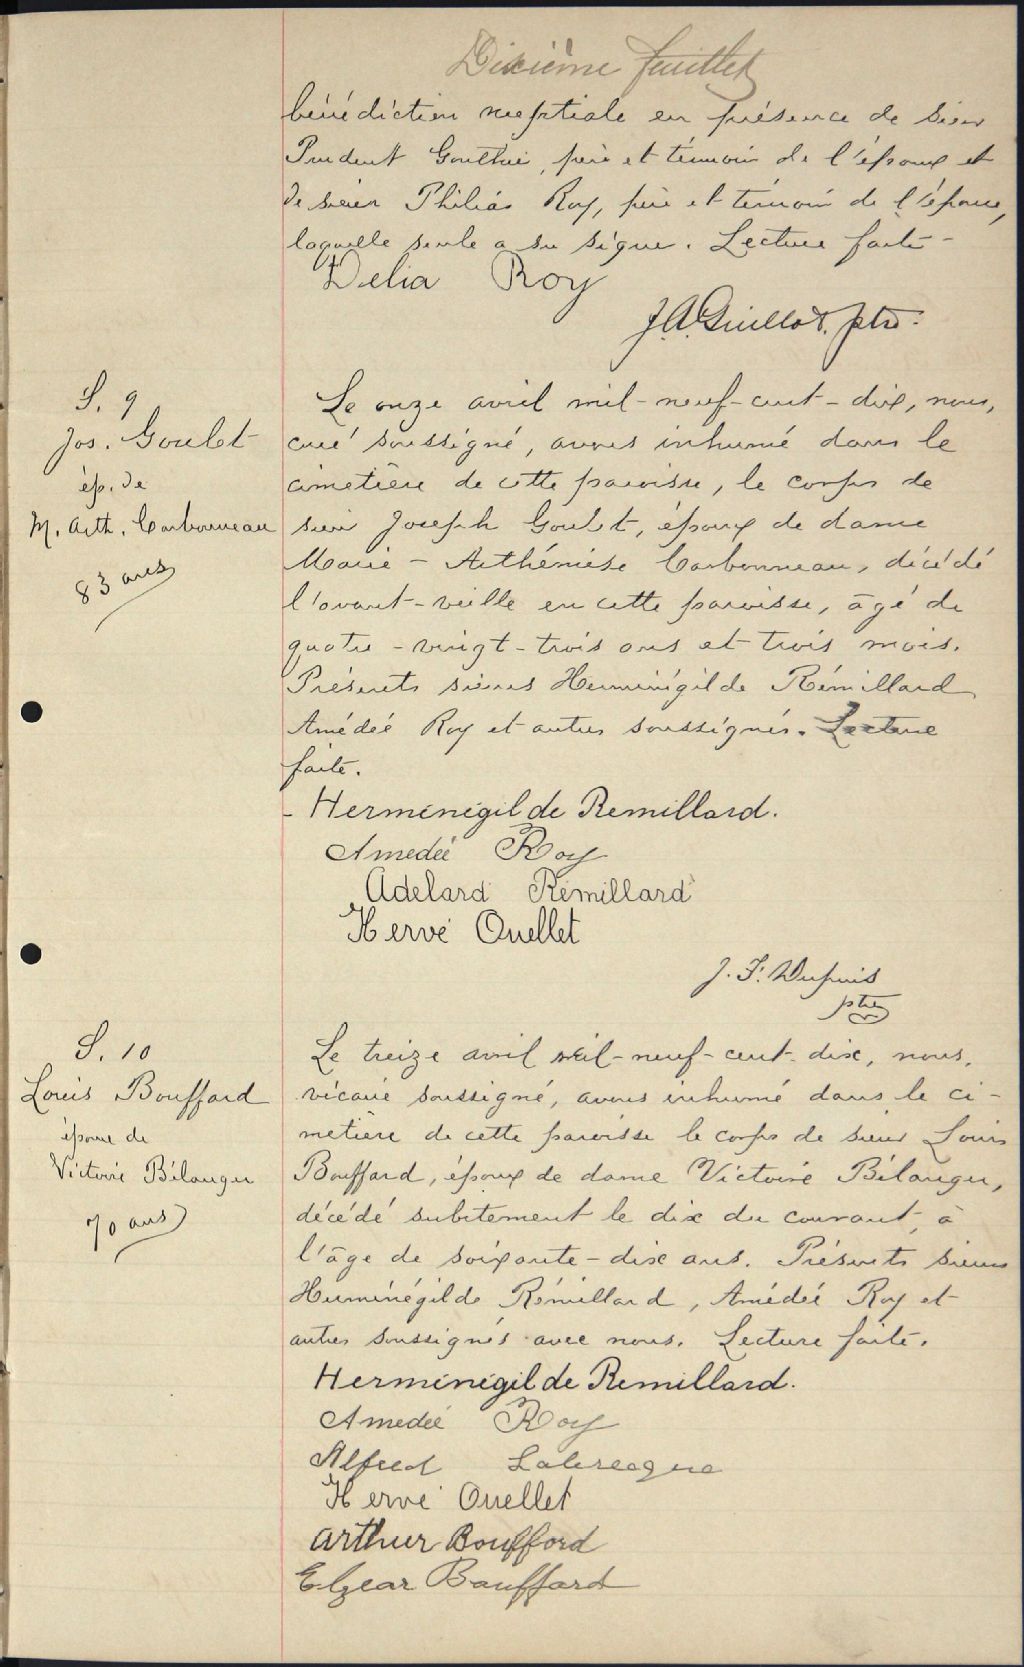 Dixième feuillet
bénédiction nuptiale en présence de sieur
Prudent Gouthié, père et témoin de l'époux et
de sieur Philias Roy, père et témoin de l'épouse,
laquelle seule a su signer. Lecture faite -
Délia Roy
J.A. Guillot. ptre.
S. 9
Jos. Goulet
ép. de
M. Arth. Carbonneau
83 ans
Le onze avril mil-neuf-cent-dix, nous,
curé soussigné, avons inhumé dans le
cimetière de cette paroisse, le corps de
sieur Joseph Goulet, époux de dame
Marie - Arthémise Carbonneau, décédé
l'avant-veille en cette paroisse, âgé de
quatre-vingt-trois ans et trois mois.
Présents sieurs Herménégilde Rémillard
Amédée Roy et autres soussignés. Lecture
faite.
- Herménégilde Remillard.
Amedée Roy
Adelard Rémillard
Hervé Ouellet
J. F. Dupuis
ptre
S. 10
Louis Bouffard
époux de
Victoire Bélanger
70 ans
Le treize avril mil-neuf-cent-dix, nous,
vicaire soussigné, avons inhumé dans le ci-
metière de cette paroisse le corps de sieur Louis
Bouffard, époux de dame Victoire Bélanger,
décédé subitement le dix du courant, à
l'âge de soixante-dix ans. Présents sieurs
Herménégilde Rémillard, Amédée Roy et
autres soussignés avec nous. Lecture faite.
Herménégilde Remillard.
Amedée Roy
Alfred Labrecque
Hervé Ouellet
Arthur Boufford
Elzear Bouffard